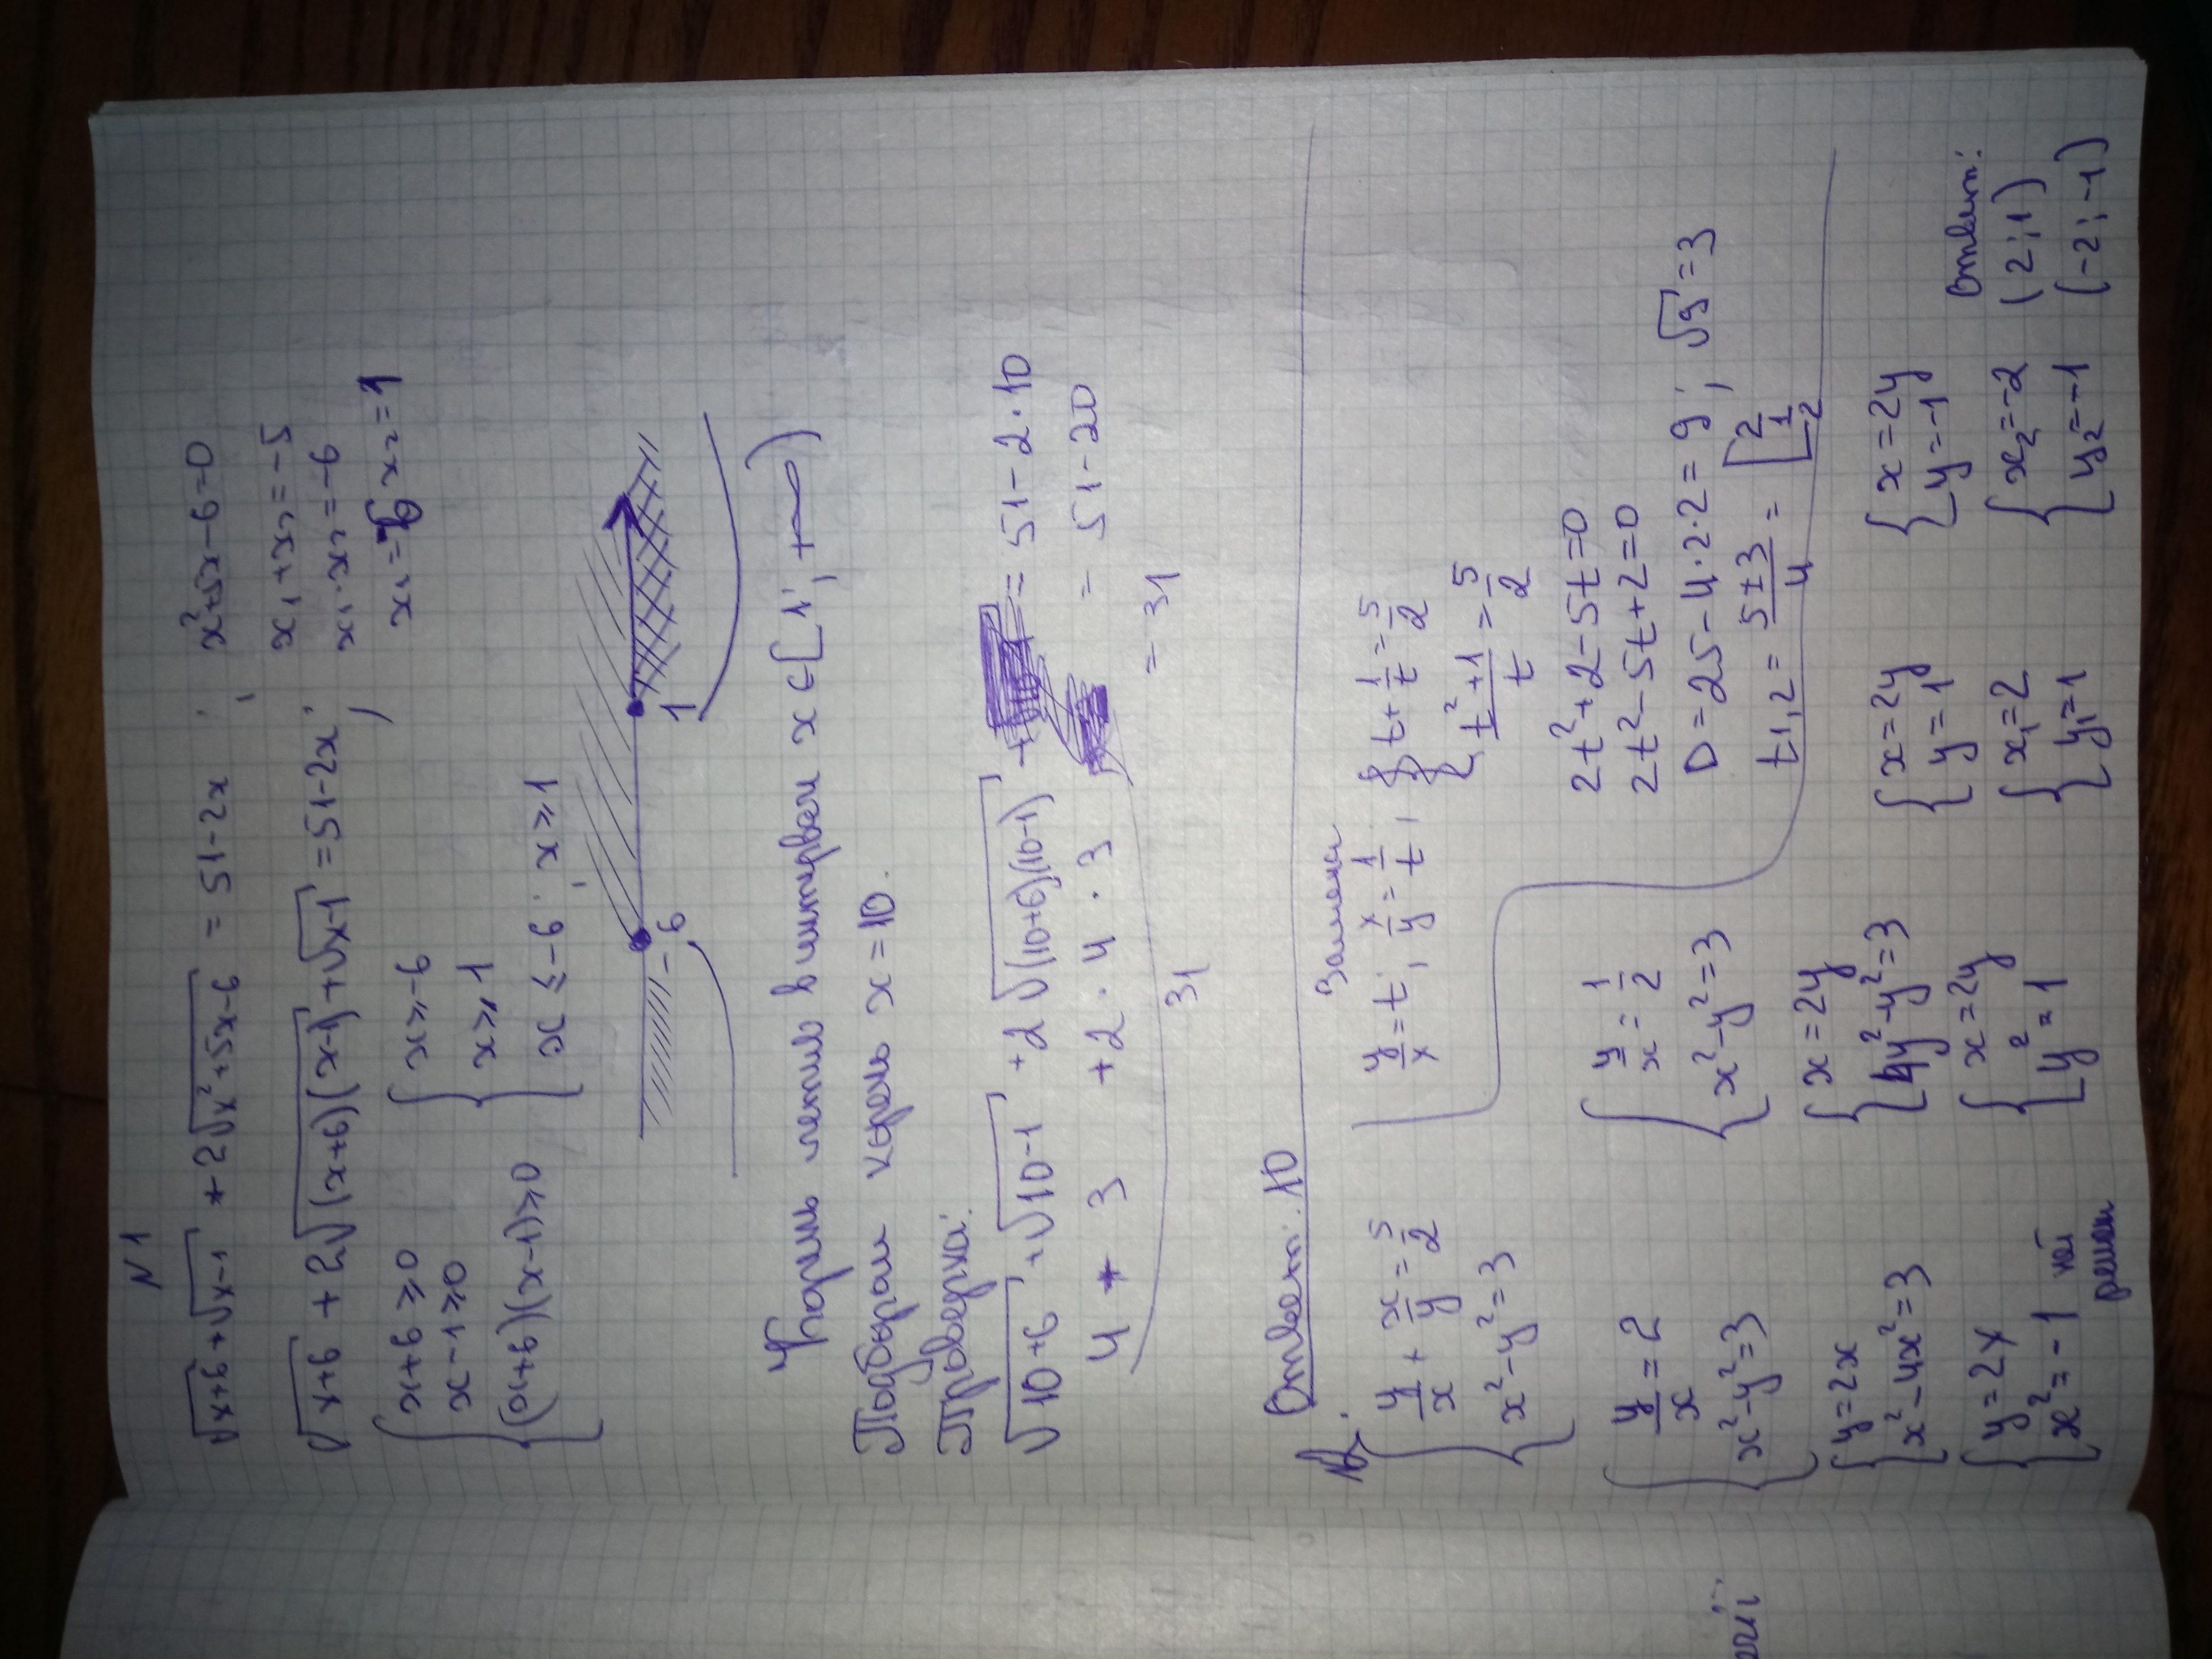 N 1
√x+6 + √x-1 + 2√x²+5x-6 = 51-2x ; x²+5x-6=0
√x+6 + 2√(x+6)(x-1) + √x-1 = 51-2x ; x₁+x₂=-5
x₁·x₂=-6
x₁=-6 x₂=1
{ x+6 ≥ 0
x-1 ≥ 0
(x+6)(x-1) ≥ 0
{ x ≥ -6
x ≥ 1
x ≤ -6 ; x ≥ 1
-6 1
Корень лежит в интервале x ∈ [1; +∞)
Подбираем корень x = 10.
Проверка:
√10+6 + √10-1 + 2√(10+6)(10-1) = 51-2·10
4 + 3 + 2·4·3 = 51-20
31 = 31
Ответ: 10
N2.
{ y/x + x/y = 5/2
x²-y²=3
Замена
y/x = t ; x/y = 1/t ;
t + 1/t = 5/2
t²+1/t = 5/2
2t²+2-5t=0
2t²-5t+2=0
D=25-4·2·2=9 ; √9=3
t₁,₂ = 5±3/4 = [ 2
1/2
{ y/x = 2
x²-y²=3
{ y/x = 1/2
x²-y²=3
{ y=2x
x²-4x²=3
{ x=2y
4y²-y²=3
{ y=2x
x²=-1 нет
решен
{ x=2y
y²=1
{ x=2y
y=1
{ x=2y
y=-1
{ x₁=2
y₁=1
{ x₂=-2
y₂=-1
Ответ:
(2;1)
(-2;-1)